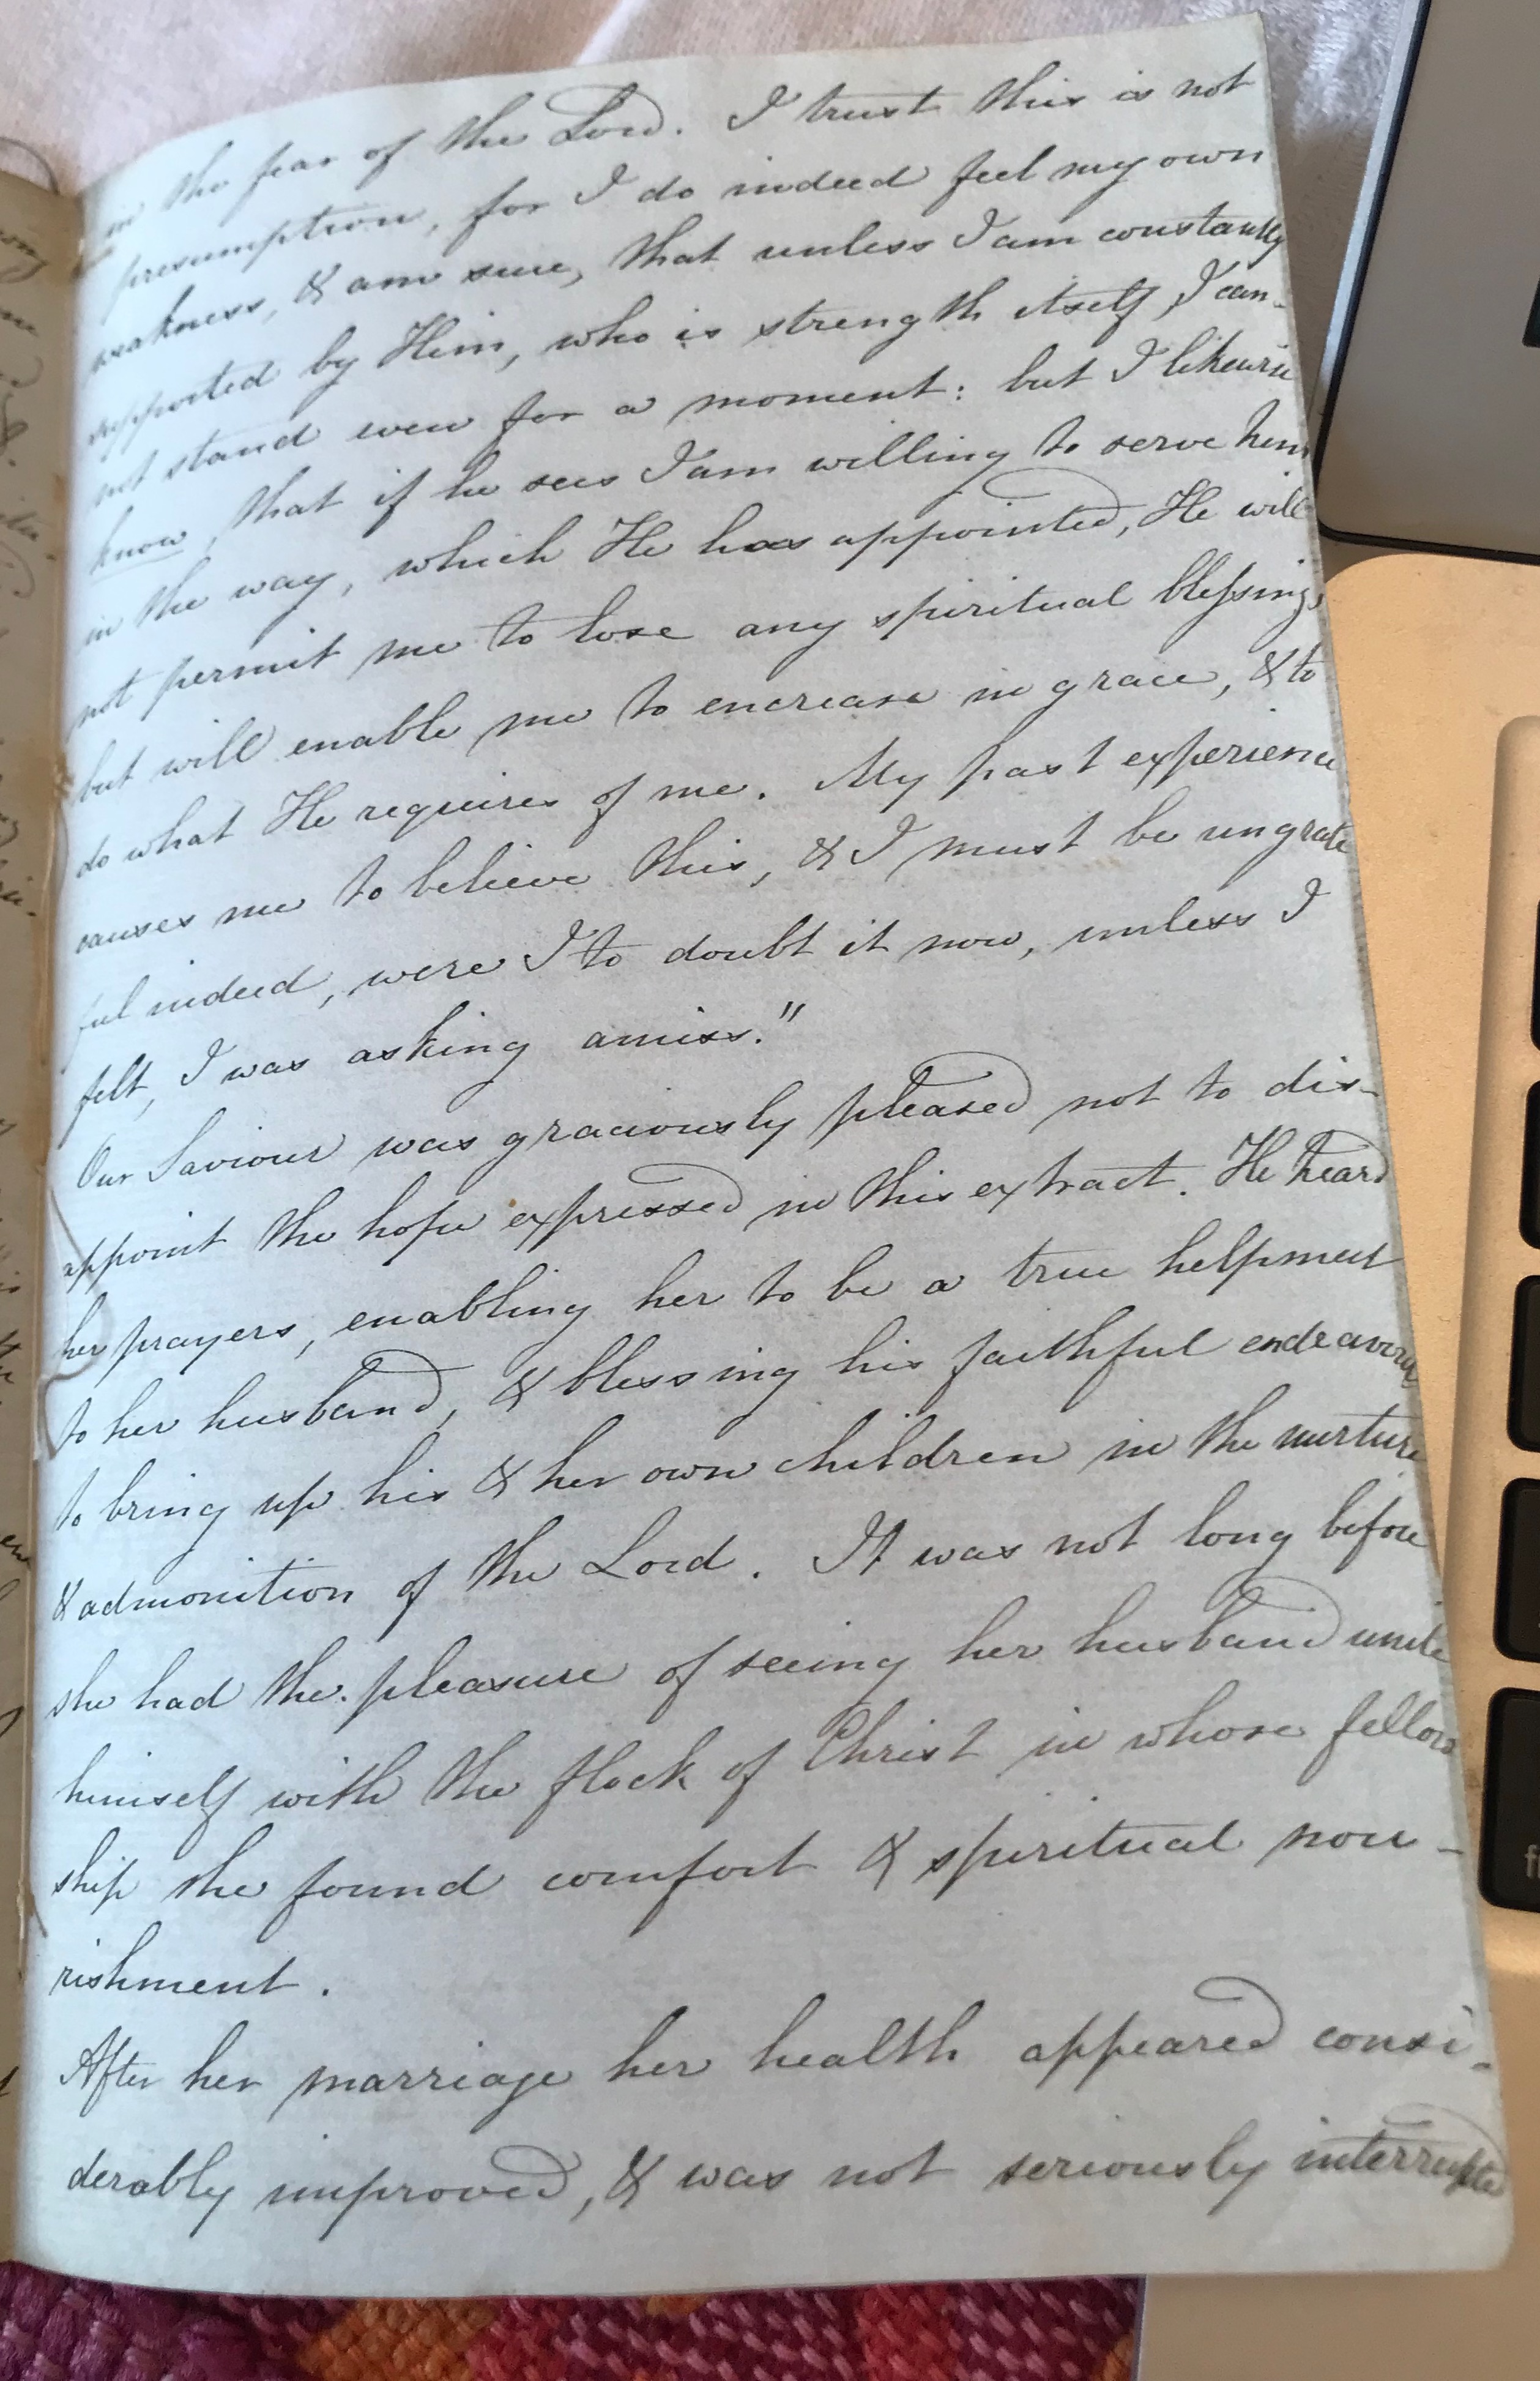 in the fear of the Lord. I trust this is not
presumption, for I do indeed feel my own
weakness, & am sure, that unless I am constantly
supported by Him, who is strength itself, I can-
not stand even for a moment: but I likewise
know, that if he sees I am willing to serve him
in the way, which He has appointed, He will
not permit me to lose any spiritual blessings
but will enable me to encrease in grace, & to
do what He requires of me. My past experience
causes me to believe this, & I must be ungrate
ful indeed, were I to doubt it now, unless I
felt, I was asking amiss."
Our Saviour was graciously pleased not to dis-
appoint the hope expressed in this extract. He heard
her prayers, enabling her to be a true helpmeet
to her husband, & blessing his faithful endeavours
to bring up his & her own children in the nurture
& admonition of the Lord. It was not long before
she had the pleasure of seeing her husband unite
himself with the flock of Christ in whose fellow
ship she found comfort & spiritual nou-
rishment.
After her marriage her health appeared consi-
derably improved, & was not seriously interrupted